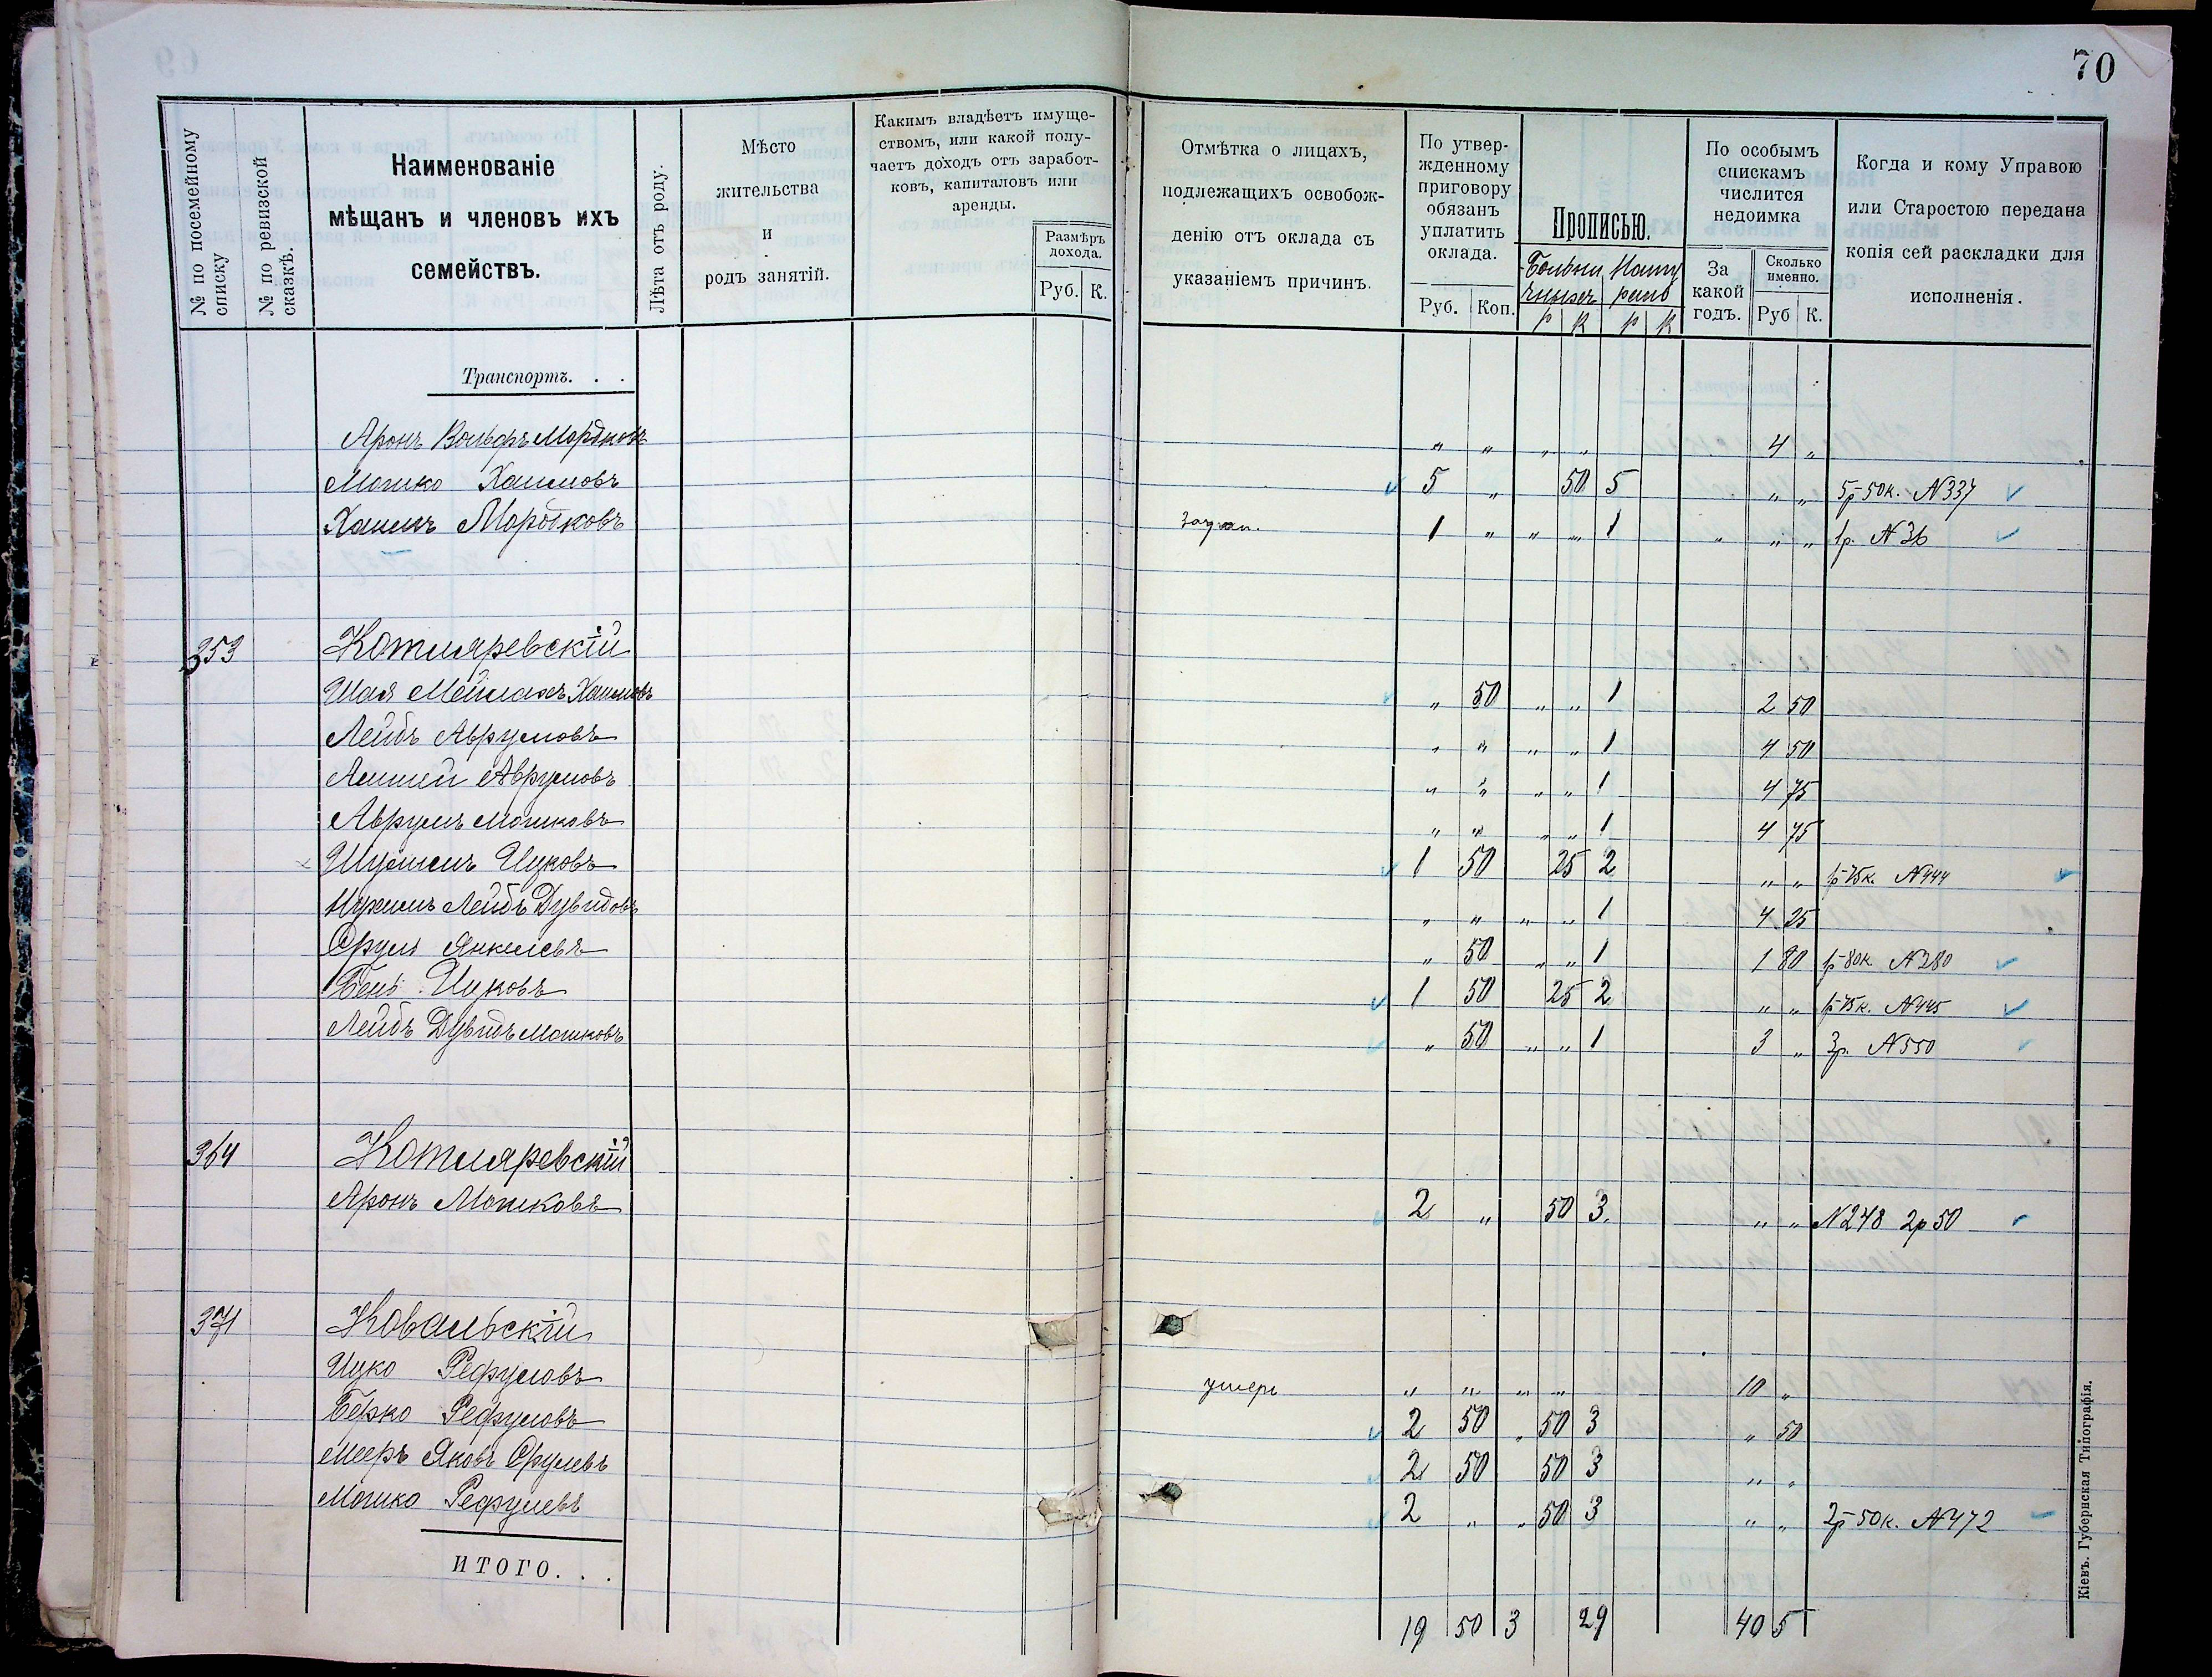 70
№ по посемейному списку
№ по ревизской сказкѣ.
Наименованіе мѣщанъ и членовъ ихъ семействъ.
Лѣта отъ роду.
Мѣсто жительства и родъ занятій.
Какимъ владѣетъ имуществомъ, или какой получаетъ доходъ отъ заработковъ, капиталовъ или аренды.
Размѣръ дохода.
Руб. К.
Отмѣтка о лицахъ, подлежащихъ освобожденію отъ оклада съ указаніемъ причинъ.
По утвержденному приговору обязанъ уплатить оклада.
Руб. Коп.
Прописью.
р к р к
По особымъ спискамъ числится недоимка
За какой годъ.
Сколько именно.
Руб К.
Когда и кому Управою или Старостою передана копія сей раскладки для исполненія.
Транспортъ. . .
Аронъ Вольфъ Мордков „ „ „ „ 4 „
Мошко Хаимовъ 5 „ 50 5 „ „ 5р 50к. №337
Хаимъ Мордковъ 1 „ „ „ 1 „ „ „ 1р. №36
353 Котляревскій
Шая Мейлахъ Хаимовъ „ 50 „ „ 1 2 50
Лейбъ Аврумовъ „ „ „ „ 1 4 50
Аврумовъ „ „ „ „ 1 4 75
Аврумъ Мошковъ „ „ „ „ 1 4 75
Шулимъ Ицковъ 1 50 25 2 „ „ 1р 75к. №444
Нухимъ Лейбъ Дувидовъ „ „ „ „ 1 4 25
Срулъ Янкелевъ „ 50 „ „ 1 1 80 1р 80к. №380
Бень Ицковъ 1 50 25 2 „ „ 1р 75к. №445
Лейбъ Дувидъ Мошковъ „ 50 „ „ 1 3 „ 3р. №550
364 Котляревскій
Аронъ Мошковъ 2 „ 50 3. „ „ №248 2р 50
371 Ковальскій
Ицко Рефуловъ умеръ „ „ „ „ 10 „
Берко Рефуловъ 2 50 „ 50 3 „ 50
Мееръ Яковъ Срулевъ 2 50 50 3 „ „
Мошко Рефулевъ 2 „ „ 50 3 „ „ 2р 50к. №472
ИТОГО. . .
19 50 3 29 40 5
Кіевъ. Губернская Типографія.